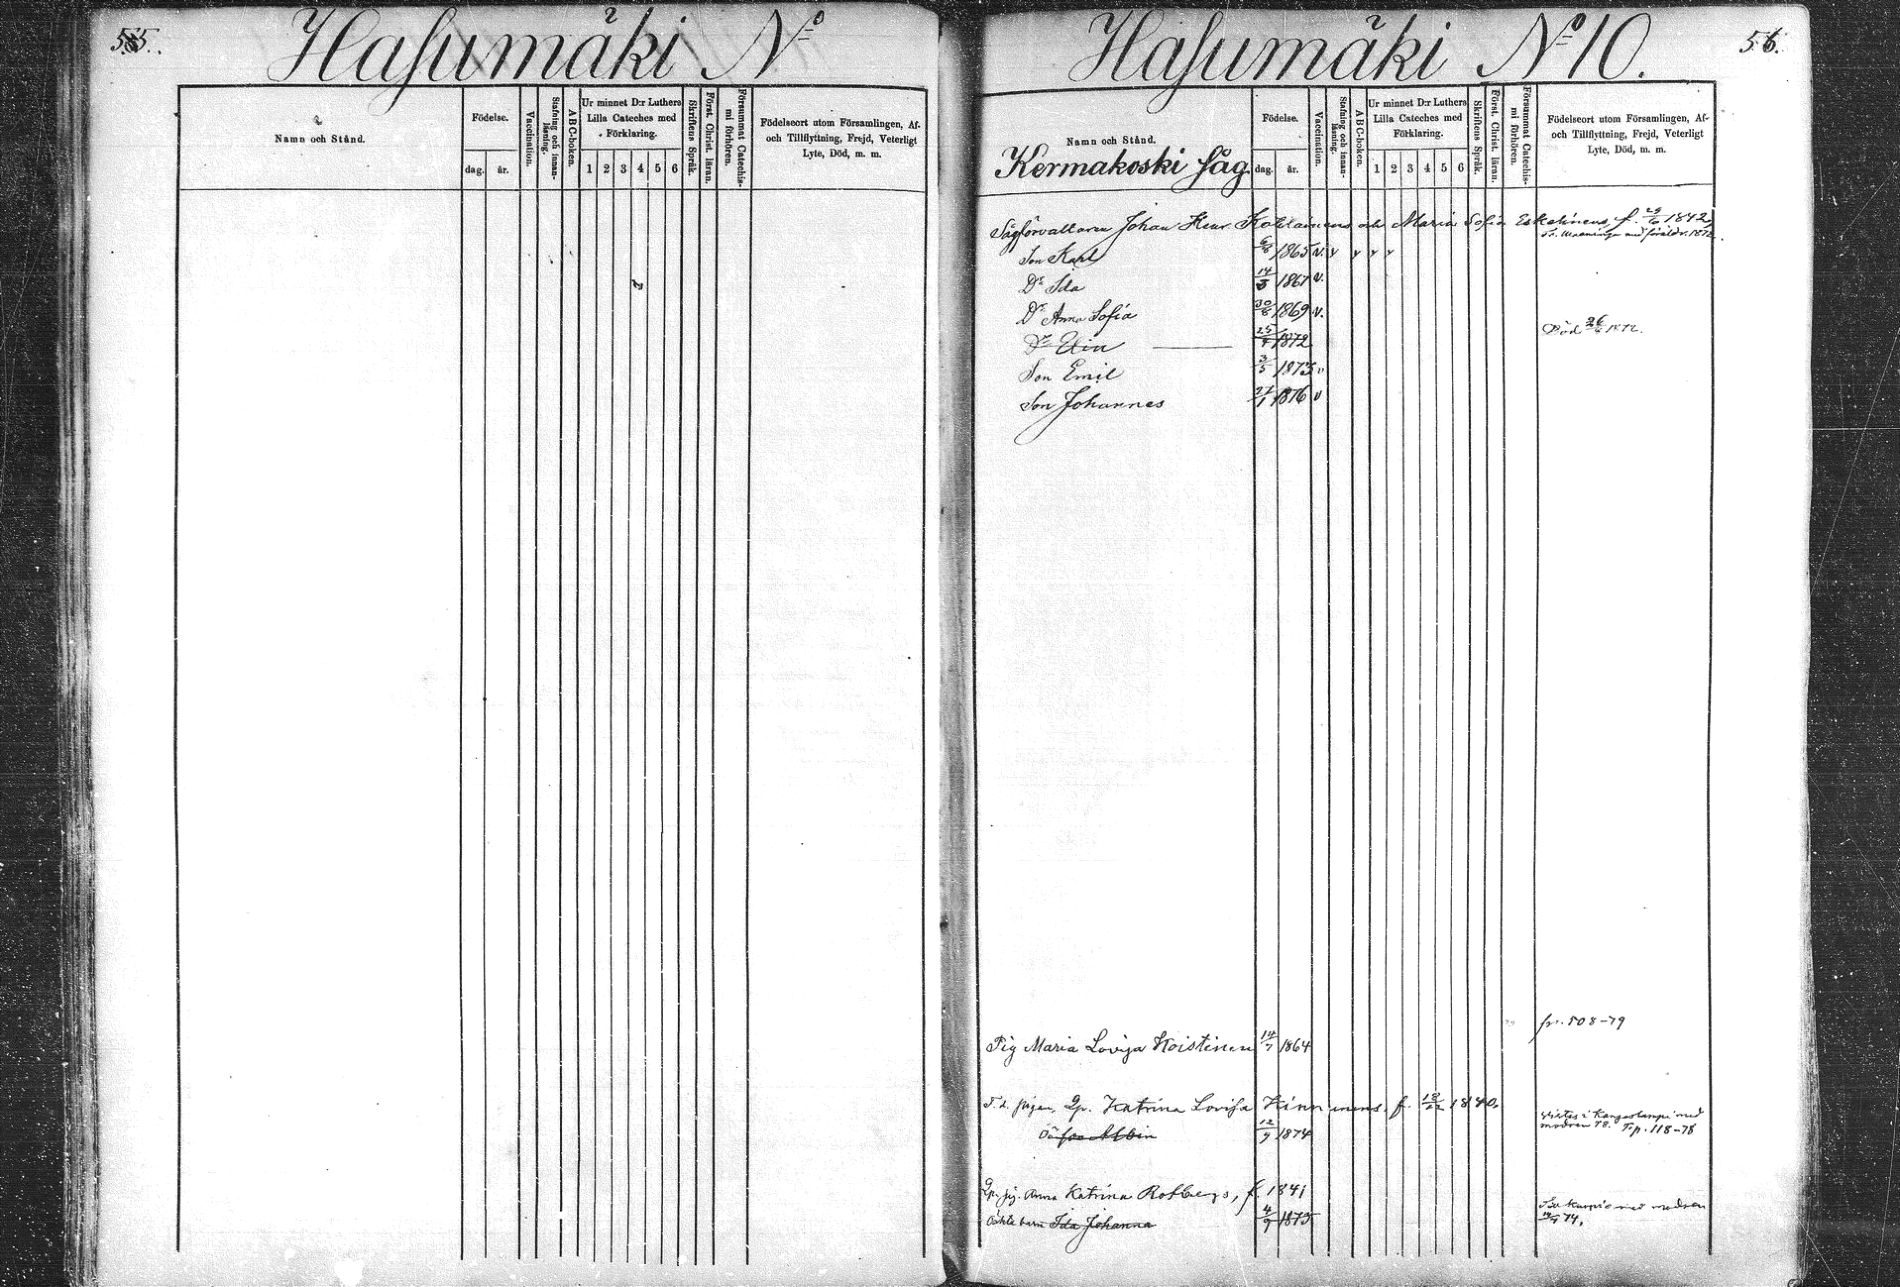 55.
Hasumäki No
Namn och Stånd.
Födelse.
dag.
år.
Vaccination.
Stafning och innan-läsning.
ABC-boken.
Ur minnet D:r Luthers
Lilla Cateches med
Förklaring.
1 2 3 4 5 6
Skriftens Språk.
Först. Christ. läran.
Försummat Catechis-
mi förhören.
Födelseort utom Församlingen, Af-
och Tillflyttning, Frejd, Veterligt
Lyte, Död, m. m.
56.
Hasumäki No 10.
Namn och Stånd.
Kermakoski såg.
Födelse.
dag.
år.
Vaccination.
Stafning och innan-läsning.
ABC-boken.
Ur minnet D:r Luthers
Lilla Cateches med
Förklaring.
1 2 3 4 5 6
Skriftens Språk.
Först. Christ. läran.
Försummat Catechis-
mi förhören.
Födelseort utom Församlingen, Af-
och Tillflyttning, Frejd, Veterligt
Lyte, Död, m. m.
Sågförvaltaren Johan Henr. och Maria Sofia Eskelinens f. 29/6 1842
Son Karl 1865 v. y y y y
Dr Ida 14/3 1867 v.
Dr Anna Sofia 30/6 1869 v.
Dr Elin 25/4 1872 Död 26/6 1872.
Son Emil 3/5 1873 v
Son Johannes 27/1 1876 v
fr. 508-79
Pig Maria Lovisa Koistinen 14/7 1864
F. d. pigan, Qp. Katrina Lovisa Kinnunens, f. 18/12 1840.
Oä son Albin 12/9 1874 med modren 78. T. p. 118-78
Qp. pig. Anna Katrina Rotbergs, f. 1841
Oäkta barn Ida Johanna 4/9 1873 Kuopio med modren 74.